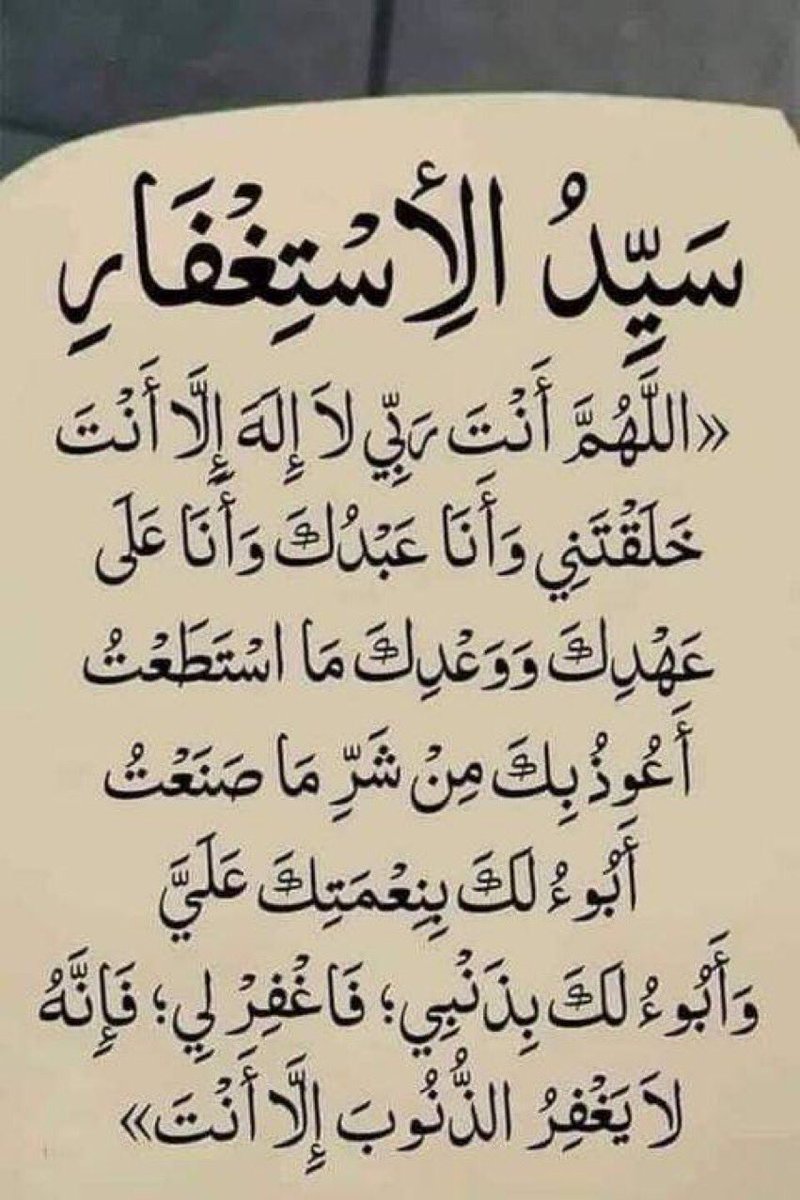 سَيِّدُ الِأسْتِغْفَارِ
«اللَّهُمَّ أَنْتَ رَبِّي لاَ إِلَهَ إِلَّا أَنْتَ
خَلَقْتَنِي وَأَنَا عَبْدُكَ وَأَنَا عَلَى
عَهْدِكَ وَوَعْدِكَ مَا اسْتَطَعْتُ
أَعُوذُ بِكَ مِنْ شَرِّ مَا صَنَعْتُ
أَبُوءُ لَكَ بِنِعْمَتِكَ عَلَيَّ
وَأَبُوءُ لَكَ بِذَنْبِي؛ فَاغْفِرْ لِي؛ فَإِنَّهُ
لاَ يَغْفِرُ الذُّنُوبَ إِلَّا أَنْتَ»